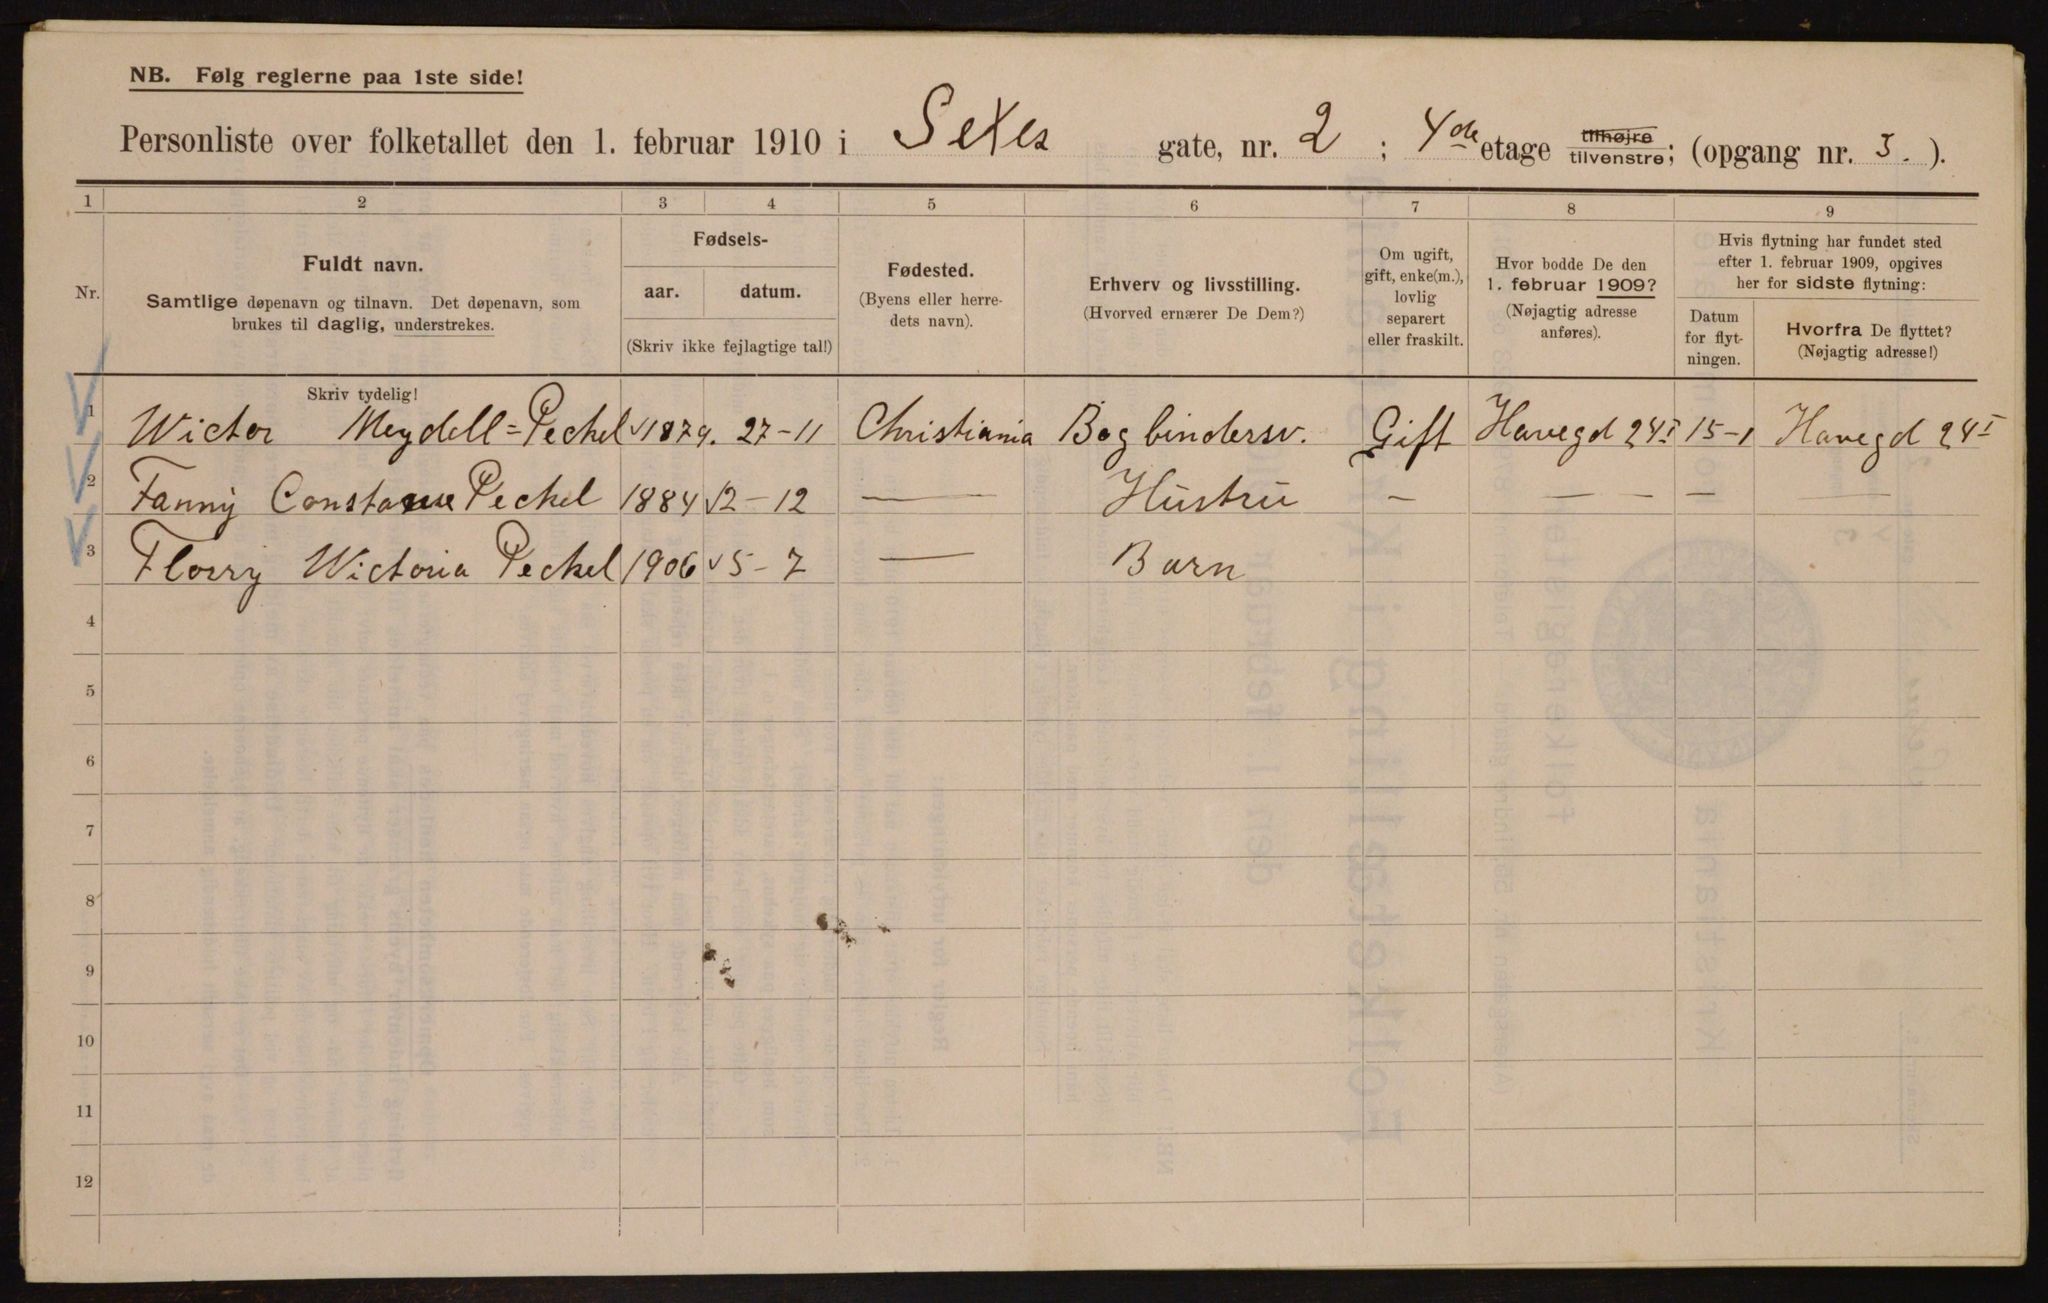 NB. Følg reglerne paa 1ste side!
Personliste over folketallet den 1. februar 1910 i Sexes gate, nr. 2 ; 4de etage tilhøjre tilvenstre; (opgang nr. 3. ).
1 2 3 4 5 6 7 8 9
Nr.
Fuldt navn.
Samtlige døpenavn og tilnavn. Det døpenavn, som
brukes til daglig, understrekes.
Fødsels-
aar. datum.
(Skriv ikke fejlagtige tal!)
Fødested.
(Byens eller herre-
dets navn).
Erhverv og livsstilling.
(Hvorved ernærer De Dem?)
Om ugift,
gift, enke(m.),
lovlig
separert
eller fraskilt.
Hvor bodde De den
1. februar 1909?
(Nøjagtig adresse
anføres).
Hvis flytning har fundet sted
efter 1. februar 1909, opgives
her for sidste flytning:
Datum
for flyt-
ningen.
Hvorfra De flyttet?
(Nøjagtig adresse!)
Skriv tydelig!
1 Wictor Meydell=Peckel 1879. 27-11 Christiania Bogbindersv. Gift Havegd 24I 15-1 Havegd 24I
2 Fanny Constance Peckel 1884 12-12 — Hustru — — — — —
3 Florry Wictoria Peckel 1906 5-7 — Barn
4
5
6
7
8
9
10
11
12